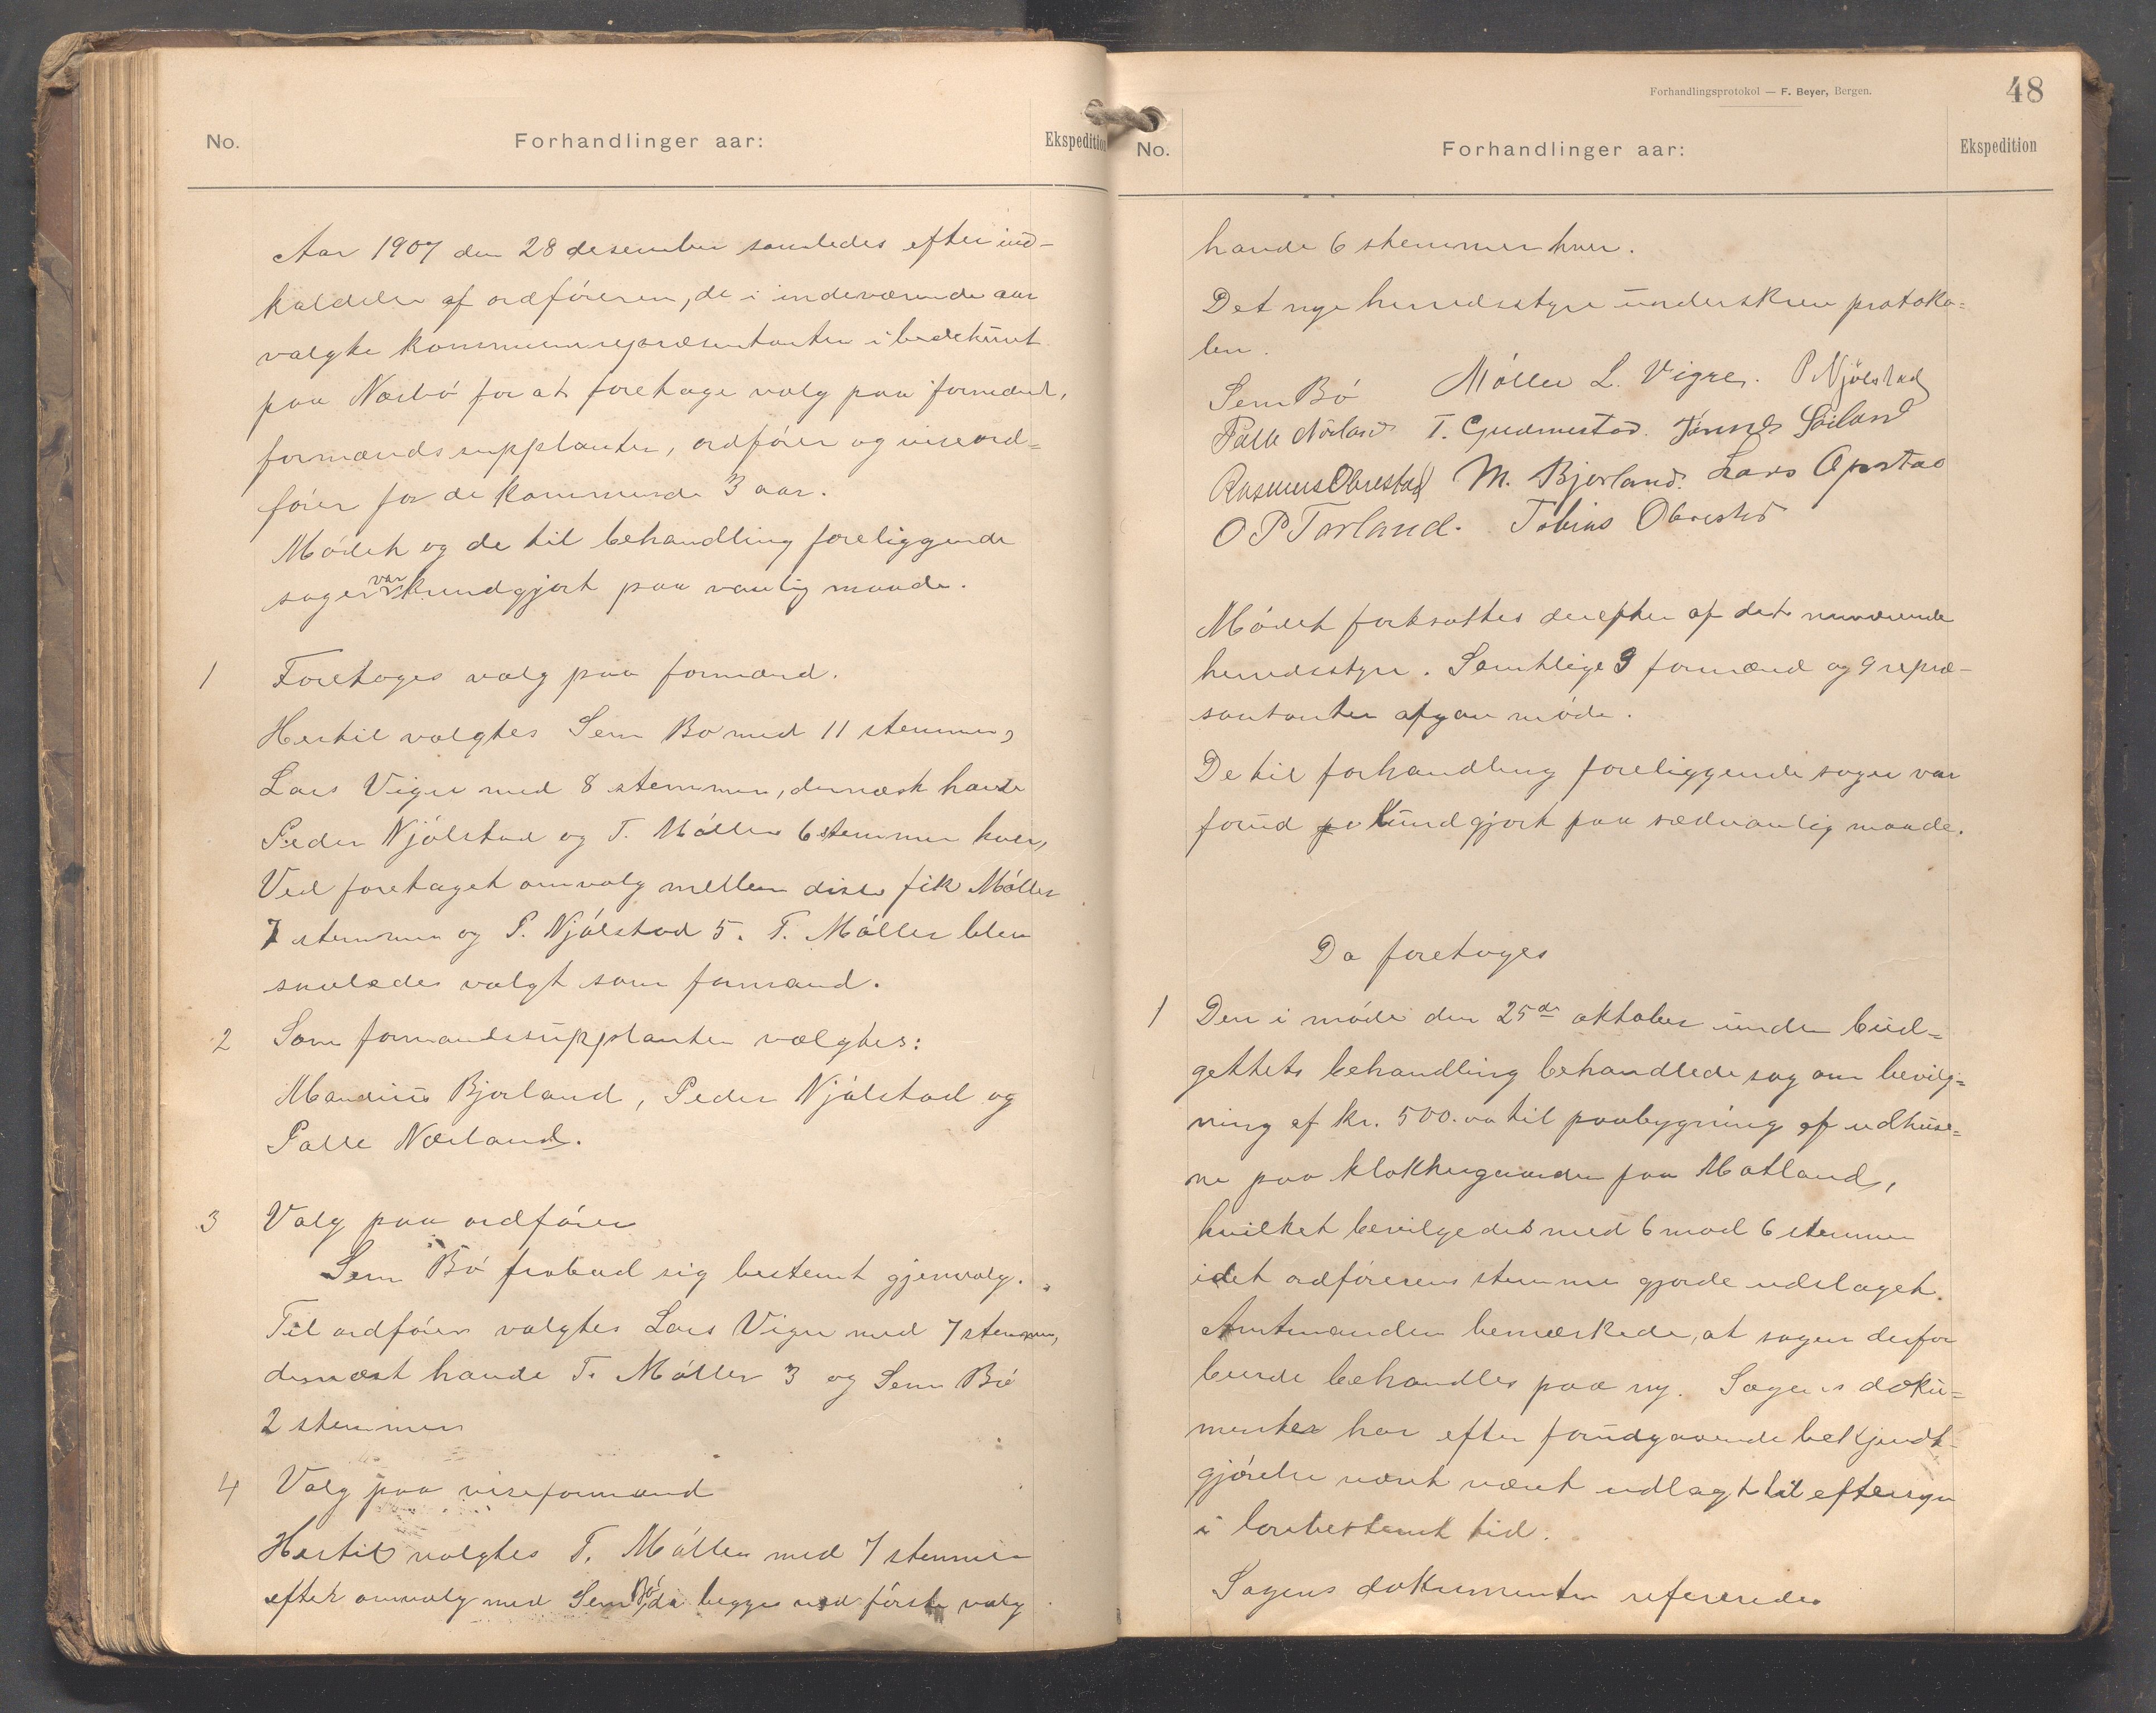 No.
Forhandlinger aar:
Ekspedition
Aar 1907 den 28 desember samledes efter ind-
kaldelse af ordføreren, de i indeværende aar
valgte kommunerepræsentanter i bedehuset
paa Nærbø for at foretage valg paa formænd,
formændssupplanter, ordfører og viseord=
fører for de kommende 3 aar.
Mødet og de til behandling foreliggende
sager var kundgjort paa vanlig maade.
1 Foretoges valg paa formænd.
Hertil valgtes Sem Bø med 11 stemmer,
Lars Vigre med 8 stemmer, dernæst havde
Peder Njølstad og T. Møller 6 stemmer hver,
Ved foretaget omvalg mellem disse fik Møller
7 stemmer og P. Njølstad 5. T. Møller blev
saaledes valgt som formand.
2 Som formandssupplanter valgtes:
Mandius Bjorland, Peder Njølstad og
Palle Nærland.
3 Valg paa ordfører
Sem Bø frabad sig bestemt gjenvalg.
Til ordfører valgtes Lars Vigre med 7 stemmer,
dernæst havde T. Møller 3 og Sem Bø
2 stemmer
4 Valg paa viseformand
Hertil valgtes T. Møller med 7 stemmer
efter omvalg med Sem Bø, da begge ved første valg
Forhandlingsprotokol — F. Beyer, Bergen.
48
No.
Forhandlinger aar:
Ekspedition
havde 6 stemmer hver.
Det nye herredsstyre underskrev protoko=
len.
Sem Bø Møller L. Vigre. P Njølstad
Palle Nærland T. Gudmestad. Tønnes Søiland
Rasmus Obrestad M. Bjorland. Lars Opstad
O P Torland. Tobias Obrestad
Mødet fortsattes derefter af det nuværende
herredsstyre. Samtlige 3 formænd og 9 repræ-
sentanter afgav møde.
De til forhandling foreliggende sager var
forud kundgjort paa sædvanlig maade.
Da foretoges
1 Den i møde den 25de oktober under bud=
gettets behandling behandlede sag om bevilg=
ning af kr. 500.00 til paabygning af udhuse=
ne paa klokkergaarden paa Motland,
hvilket bevilgedes med 6 mod 6 stemmer
idet ordførerens stemme gjorde udslaget.
Amtmanden bemærkede, at sagen derfor
burde behandles paa ny. Sagens doku=
menter har efter forudgaaende bekjendt-
gjørelse været været udlagt til eftersyn
i lovbestemt tid.
Sagens dokumenter refereredes